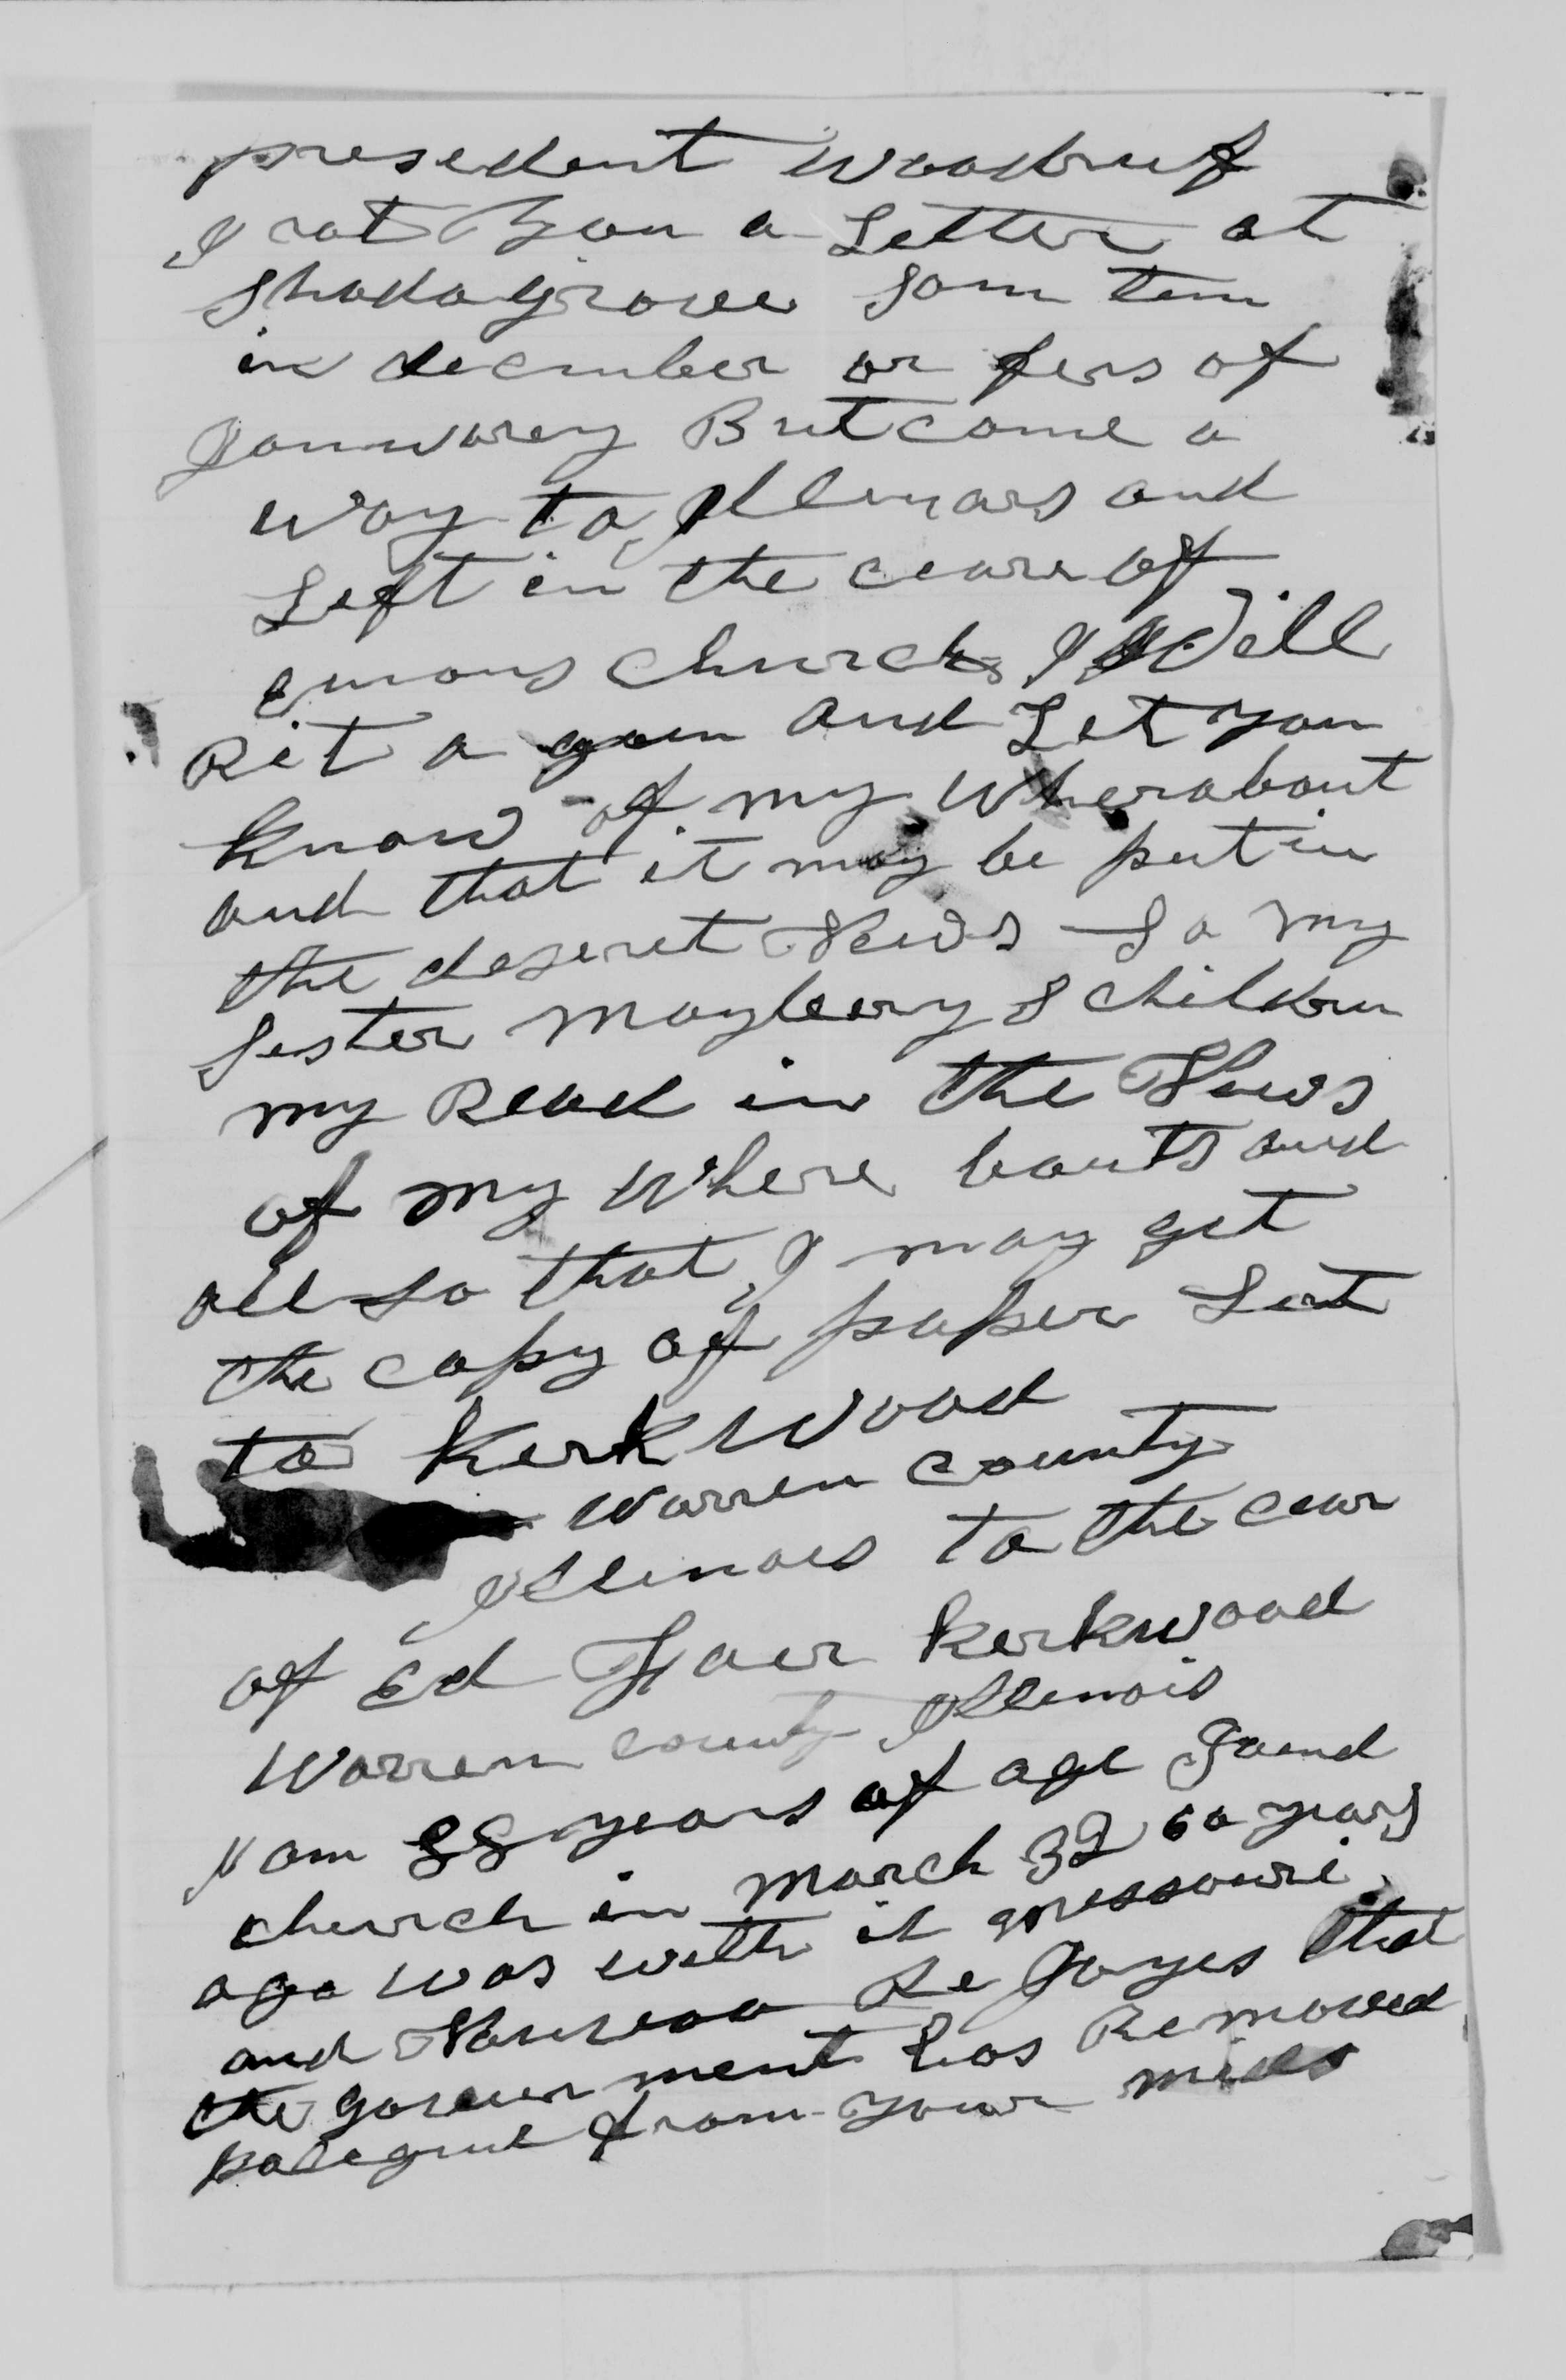 presedent Woodruf
I rot You a Letter at
Shadagrove Som tim
in decmber or fers of
Januarey But come a
way to Illenoas and
Left in the ceare of
emons Church I Will
Rit a gain and Let you
know of my Wherabout
and that it may be put in
the deseret News So my
Sester mayberry & children
my Read in the News
of my Where bouts and
all so that I may get
the copy of paper Sent
to Kerkwood
Warren county
Illenoes to the cear
of Ed Kerkwood
Warren county Illenois
I am 88 years of age Joend
church in march 32 60 years
ago was with it messouri
and Nauvoo Re Joyes that
the goverment has Removed
from your mids